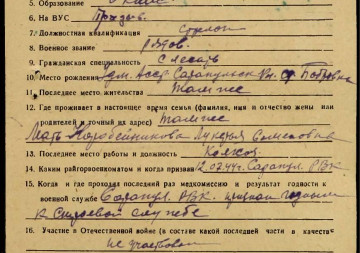 5. Образование
6. На ВУС
7. Должностная квалификация стрелок
8. Военное звание рядов.
9. Гражданская специальность слесарь
10. Место рождения Удм. Асср Сарапульск
11. Последнее место жительства Там же
12. Где проживает в настоящее время семья (фамилия, имя и отчество жены или
родителей и точный их адрес) Там же
Мать Коробейникова Семеновна
13. Последнее место работы и должность Колхоз
14. Каким райгорвоенкоматом и когда призван 12.02.44 г. Сарапул. РВК
15. Когда и где проходил последний раз медкомиссию и результат годности к
военной службе Сарапул. РВК. признан годным
к строевой службе
16. Участие в Отечественной войне (в составе какой последней части в качестве
не участвовал